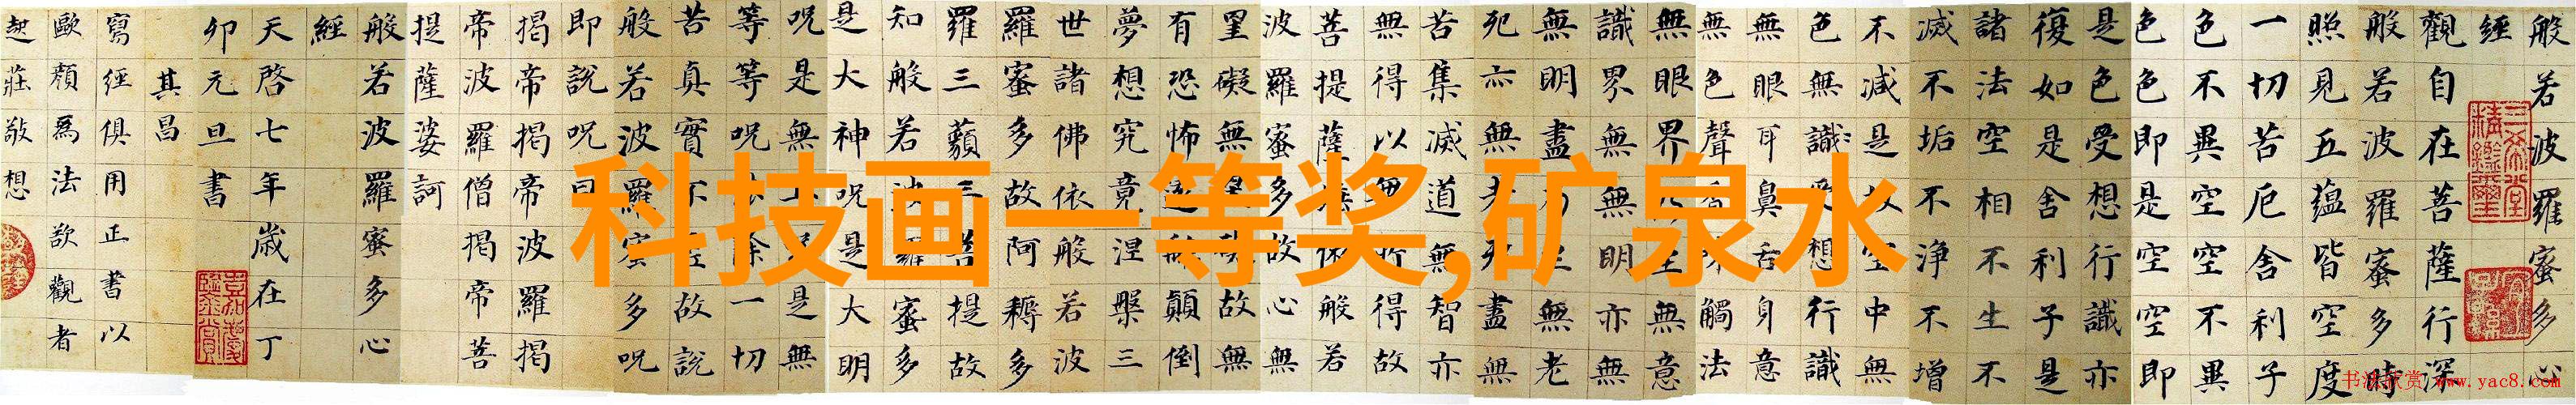 般若波羅蜜多心
經
觀自在菩薩行深
般若波羅蜜多時
照見五蘊皆空度
一切苦厄舍利子
色不異空空不異
色色即是空空即
是色受想行識亦
復如是舍利子是
諸法空相不生不
滅不垢不淨不增
不減是故空中無
色無識受想行識
無眼耳鼻舌身意
無色聲香味觸法
無眼界乃至無意
識界無無明亦無
無明盡乃至無老
死亦無老死盡無
苦集滅道無智亦
無得以無所得故
菩提薩埵依般若
波羅蜜多故心無
罣礙無罣礙故無
有恐怖遠離顛倒
夢想究竟涅槃三
世諸佛依般若波
羅蜜多故阿耨多
羅三藐三菩提故
知般若波羅蜜多
是大神呪是大明
呪是無上呪是無
等等呪能除一切
苦真實不虛故說
般若波羅蜜多呪
即說呪曰
揭帝揭帝波羅揭
帝波羅僧揭帝菩
提薩婆訶
般若波羅蜜多心
經
天啓七年歲在丁
卯元旦書
其昌
寫經俱用正書以
歐顏爲法欲觀者
起莊敬想
科技画一等奖,矿泉水
书法欣赏 www.yac8.com